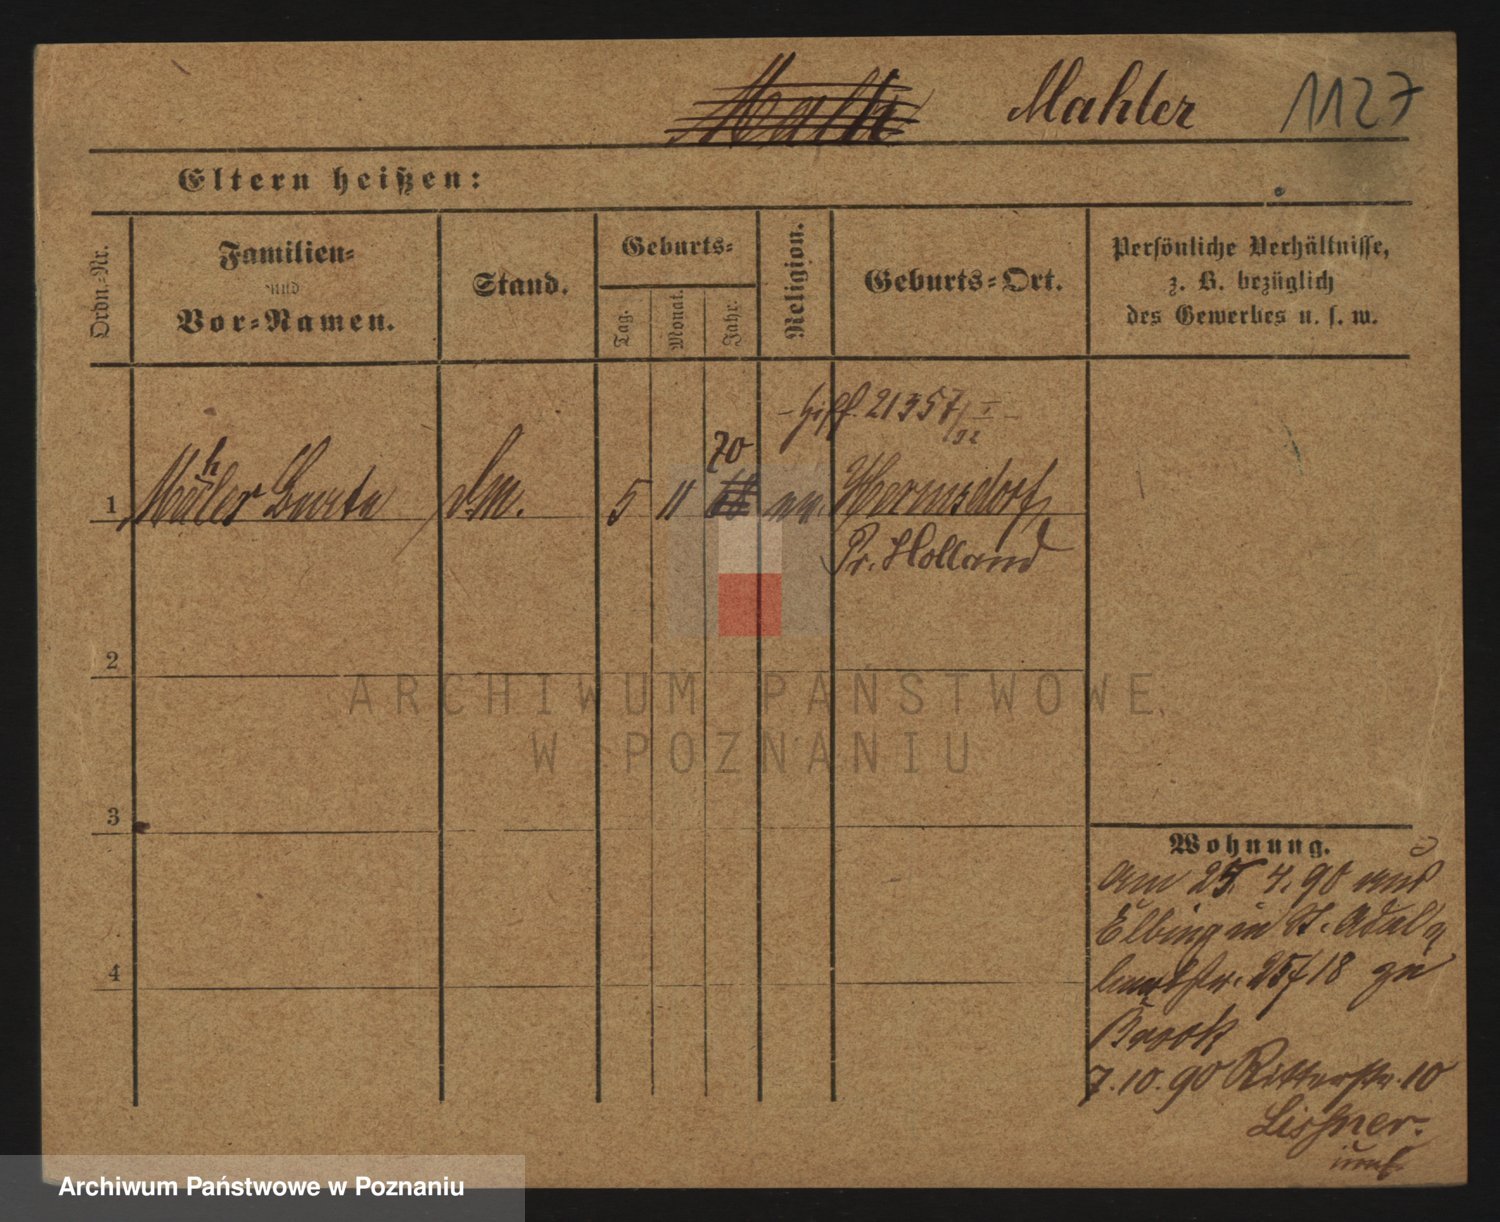 Mahler 1127
Eltern heißen:
Ordn.-Nr.
Familien-
und
Vor-Namen.
Stand.
Geburts-
Tag.
Monat.
Jahr.
Religion.
Geburts-Ort.
Persönliche Verhältnisse,
z. B. bezüglich
des Gewerbes u. s. w.
21357/I
92
70
1 Mahler 5 11 Hermsdorf
Pr. Holland
2
3
4
Wohnung.
am 25. 4. 90 aus
Elbing in St. Adal
bertstr. 25/18 zu
Brook
7.10.90 Ritterstr. 10
Lissner.
ARCHIWUM PAŃSTWOWE
W POZNANIU
Archiwum Państwowe w Poznaniu